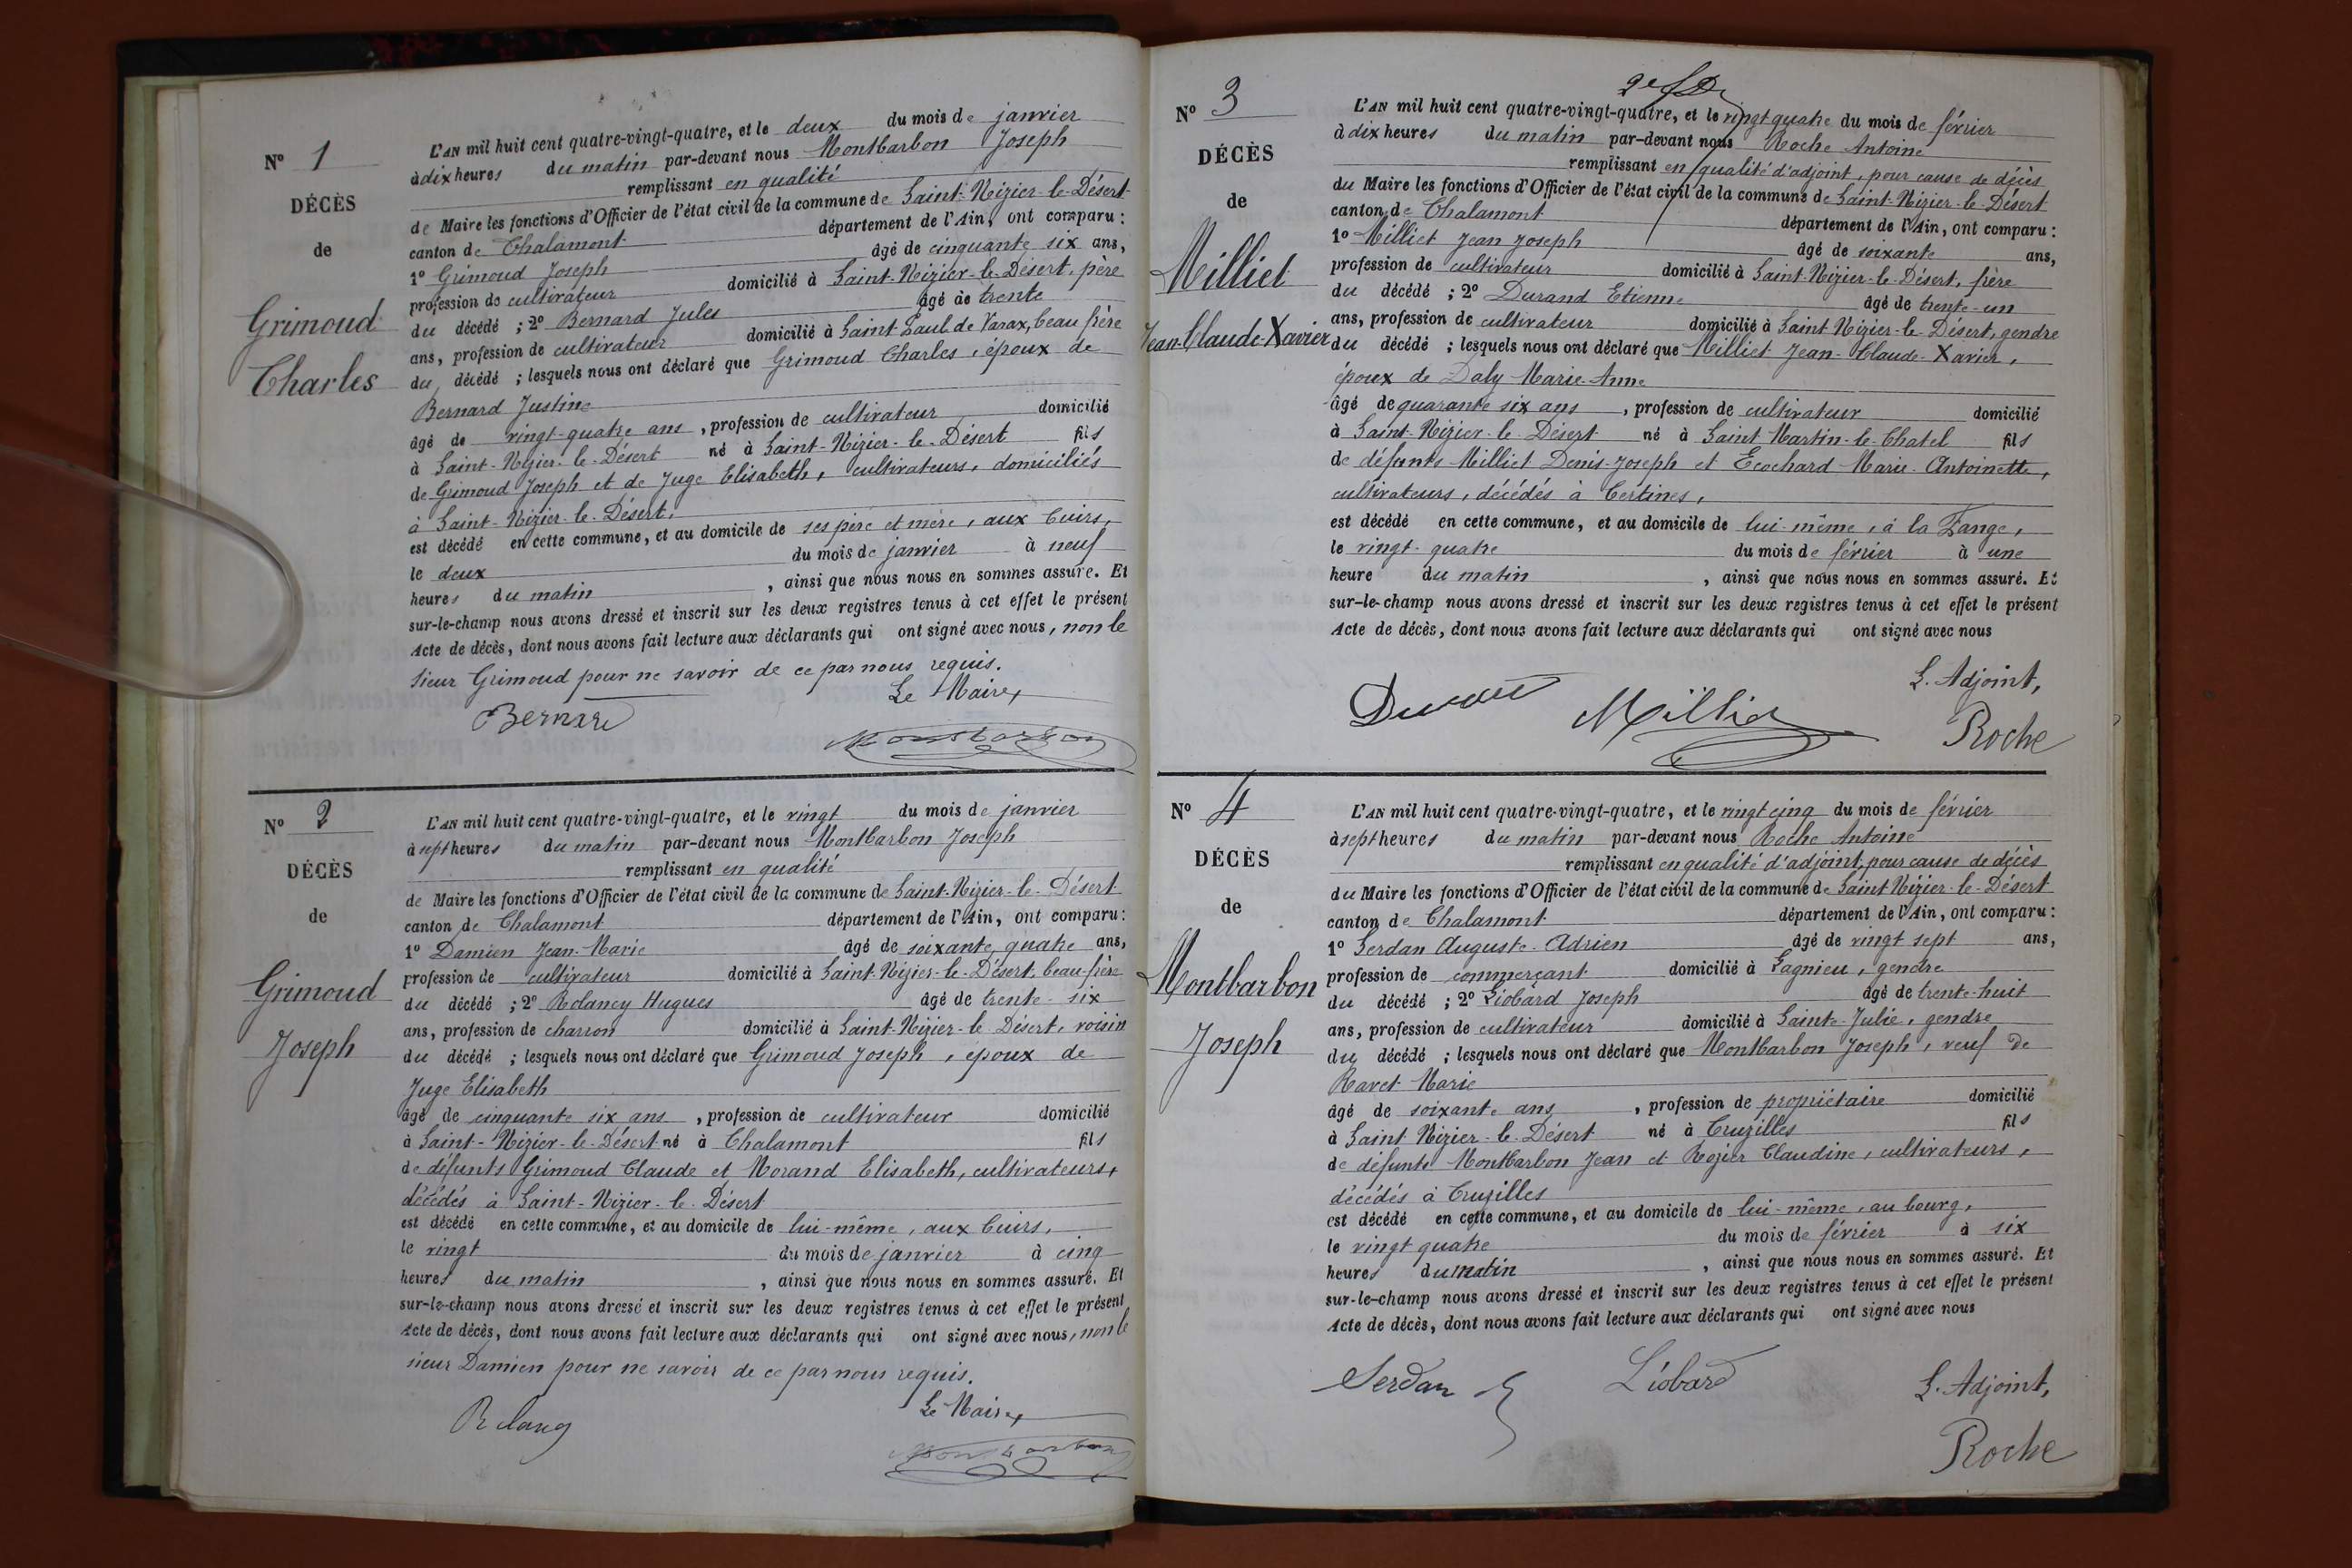 N° 1
DÉCÈS
de
Grimoud
Charles
L'AN mil huit cent quatre-vingt-quatre, et le deux du mois de janvier
à dix heures du matin par-devant nous Montbarbon Joseph
remplissant en qualité
de Maire les fonctions d'Officier de l'état civil de la commune de Saint-Nizier-le-Désert
canton de Chalamont département de l'Ain, ont comparu :
1° Grimoud Joseph âgé de cinquante six ans,
profession de cultivateur domicilié à Saint-Nizier-le-Désert, père
du décédé ; 2° Bernard Jules âgé de trente
ans, profession de cultivateur domicilié à Saint Paul de Varax, beau frère
du décédé ; lesquels nous ont déclaré que Grimoud Charles, époux de
Bernard Justine
âgé de vingt-quatre ans, profession de cultivateur domicilié
à Saint-Nizier-le-Désert né à Saint-Nizier-le-Désert fils
de Grimoud Joseph et de Juge Elisabeth, cultivateurs, domiciliés
à Saint-Nizier-le-Désert,
est décédé en cette commune, et au domicile de ses père et mère, aux Cuirs,
le deux du mois de janvier à neuf
heures du matin, ainsi que nous nous en sommes assuré. Et
sur-le-champ nous avons dressé et inscrit sur les deux registres tenus à cet effet le présent
Acte de décès, dont nous avons fait lecture aux déclarants qui ont signé avec nous, non le
sieur Grimoud pour ne savoir de ce par nous requis.
Le Maire,
Bernard
Montbarbon
N° 2
DÉCÈS
de
Grimoud
Joseph
L'AN mil huit cent quatre-vingt-quatre, et le vingt du mois de janvier
à sept heures du matin par-devant nous Montbarbon Joseph
remplissant en qualité
de Maire les fonctions d'Officier de l'état civil de la commune de Saint-Nizier-le-Désert
canton de Chalamont département de l'Ain, ont comparu :
1° Damien Jean-Marie âgé de soixante quatre ans,
profession de cultivateur domicilié à Saint-Nizier-le-Désert, beau-frère
du décédé ; 2° Rolancy Hugues âgé de trente-six
ans, profession de charron domicilié à Saint-Nizier-le Désert, voisin
du décédé ; lesquels nous ont déclaré que Grimoud Joseph, époux de
Juge Elisabeth
âgé de cinquante six ans, profession de cultivateur domicilié
à Saint-Nizier-le-Désert né à Chalamont fils
de défunts Grimoud Claude et Morand Elisabeth, cultivateurs,
décédés à Saint-Nizier-le-Désert
est décédé en cette commune, et au domicile de lui-même, aux Cuirs,
le vingt du mois de janvier à cinq
heures du matin, ainsi que nous nous en sommes assuré. Et
sur-le-champ nous avons dressé et inscrit sur les deux registres tenus à cet effet le présent
Acte de décès, dont nous avons fait lecture aux déclarants qui ont signé avec nous, non le
sieur Damien pour ne savoir de ce par nous requis.
Le Maire,
Montbarbon
N° 3
DÉCÈS
de
Milliet
Jean-Claude-Xavier
L'AN mil huit cent quatre-vingt-quatre, et le vingt quatre du mois de février
à dix heures du matin par-devant nous Roche Antoine
remplissant en qualité d'adjoint, pour cause de décès
du Maire les fonctions d'Officier de l'état civil de la commune de Saint-Nizier-le-Désert
canton de Chalamont département de l'Ain, ont comparu :
1° Milliet Jean Joseph âgé de soixante ans,
profession de cultivateur domicilié à Saint-Nizier-le-Désert, frère
du décédé ; 2° Durand Etienne âgé de trente-un
ans, profession de cultivateur domicilié à Saint Nizier-le-Désert, gendre
du décédé ; lesquels nous ont déclaré que Milliet Jean-Claude-Xavier,
époux de Daly Marie-Anne
âgé de quarante six ans, profession de cultivateur domicilié
à Saint-Nizier-le Désert né à Saint Martin-le-Chatel fils
de défunts Milliet Denis-Joseph et Ecochard Marie-Antoinette,
cultivateurs, décédés à Certines,
est décédé en cette commune, et au domicile de lui-même, à la Fange,
le vingt-quatre du mois de février à une
heure du matin, ainsi que nous nous en sommes assuré. Et
sur-le-champ nous avons dressé et inscrit sur les deux registres tenus à cet effet le présent
Acte de décès, dont nous avons fait lecture aux déclarants qui ont signé avec nous
L'Adjoint,
Durand
Milliet
Roche
N° 4
DÉCÈS
de
Montbarbon
Joseph
L'AN mil huit cent quatre-vingt-quatre, et le vingt cinq du mois de février
à sept heures du matin par-devant nous Roche Antoine
remplissant en qualité d'adjoint, pour cause de décès
du Maire les fonctions d'Officier de l'état civil de la commune de Saint Nizier-le-Désert
canton de Chalamont département de l'Ain, ont comparu :
1° Serdan Auguste-Adrien âgé de vingt sept ans,
profession de commerçant domicilié à Lagnieu, gendre
du décédé ; 2° Liobard Joseph âgé de trente-huit
ans, profession de cultivateur domicilié à Sainte-Julie, gendre
du décédé ; lesquels nous ont déclaré que Montbarbon Joseph, veuf de
Ravet Marie
âgé de soixante ans, profession de propriétaire domicilié
à Saint Nizier-le-Désert né à Cruzilles fils
de défunts Montbarbon Jean et Rozier Claudine, cultivateurs,
décédés à Cruzilles
est décédé en cette commune, et au domicile de lui-même, au bourg,
le vingt quatre du mois de février à six
heures du matin, ainsi que nous nous en sommes assuré. Et
sur-le-champ nous avons dressé et inscrit sur les deux registres tenus à cet effet le présent
Acte de décès, dont nous avons fait lecture aux déclarants qui ont signé avec nous
Serdan
Liobard
L'Adjoint,
Roche